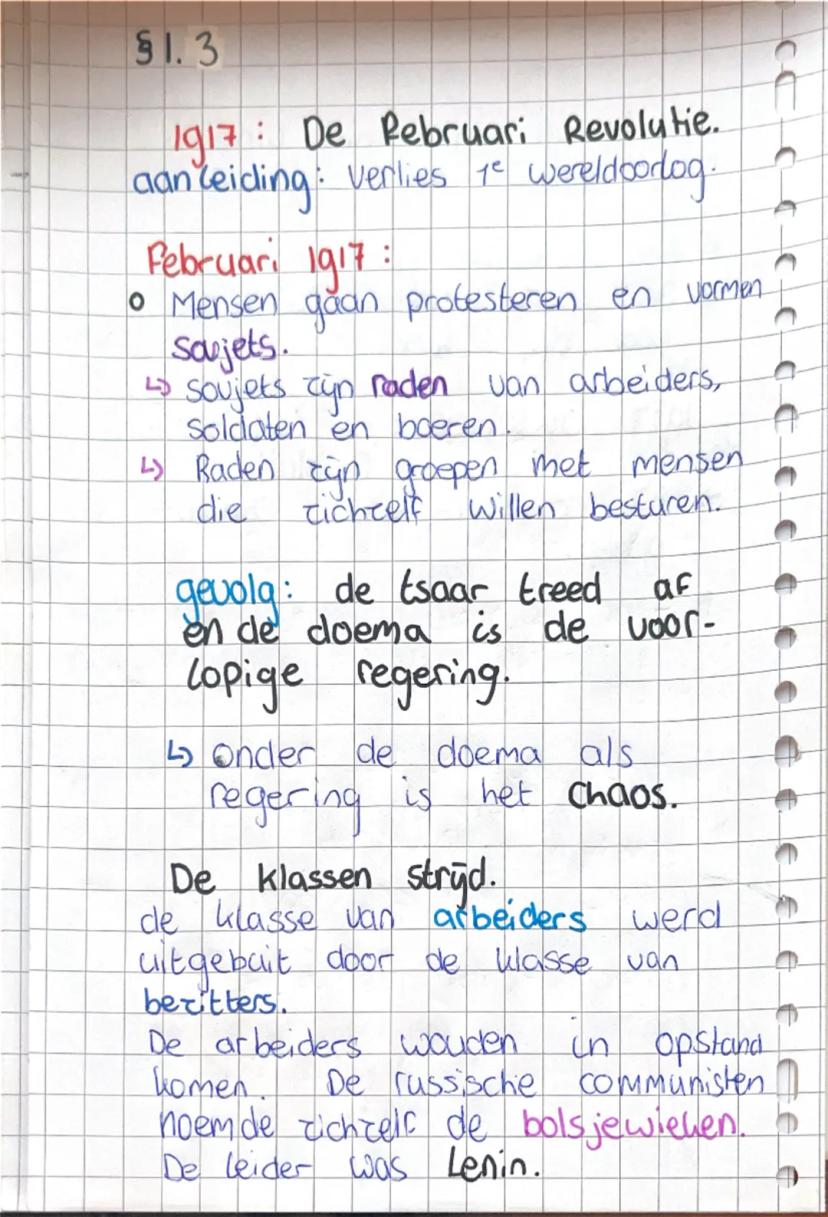 § 1.3
1917: De Februari Revolutie.
aanleiding: verlies 1e wereldoorlog.
Februari 1917:
o Mensen gaan protesteren en vormen
sovjets.
↳ sovjets zijn raden van arbeiders,
soldaten en boeren.
↳ Raden zijn groepen met mensen
die zichzelf willen besturen.
gevolg: de tsaar treed af
en de doema is de voor-
lopige regering.
↳ onder de doema als
regering is het chaos.
De klassen strijd.
de klasse van arbeiders werd
uitgebuit door de klasse van
bezitters.
De arbeiders wouden in opstand
komen. De russische communisten
noemde zichzelf de bolsjewieken.
De leider was Lenin.